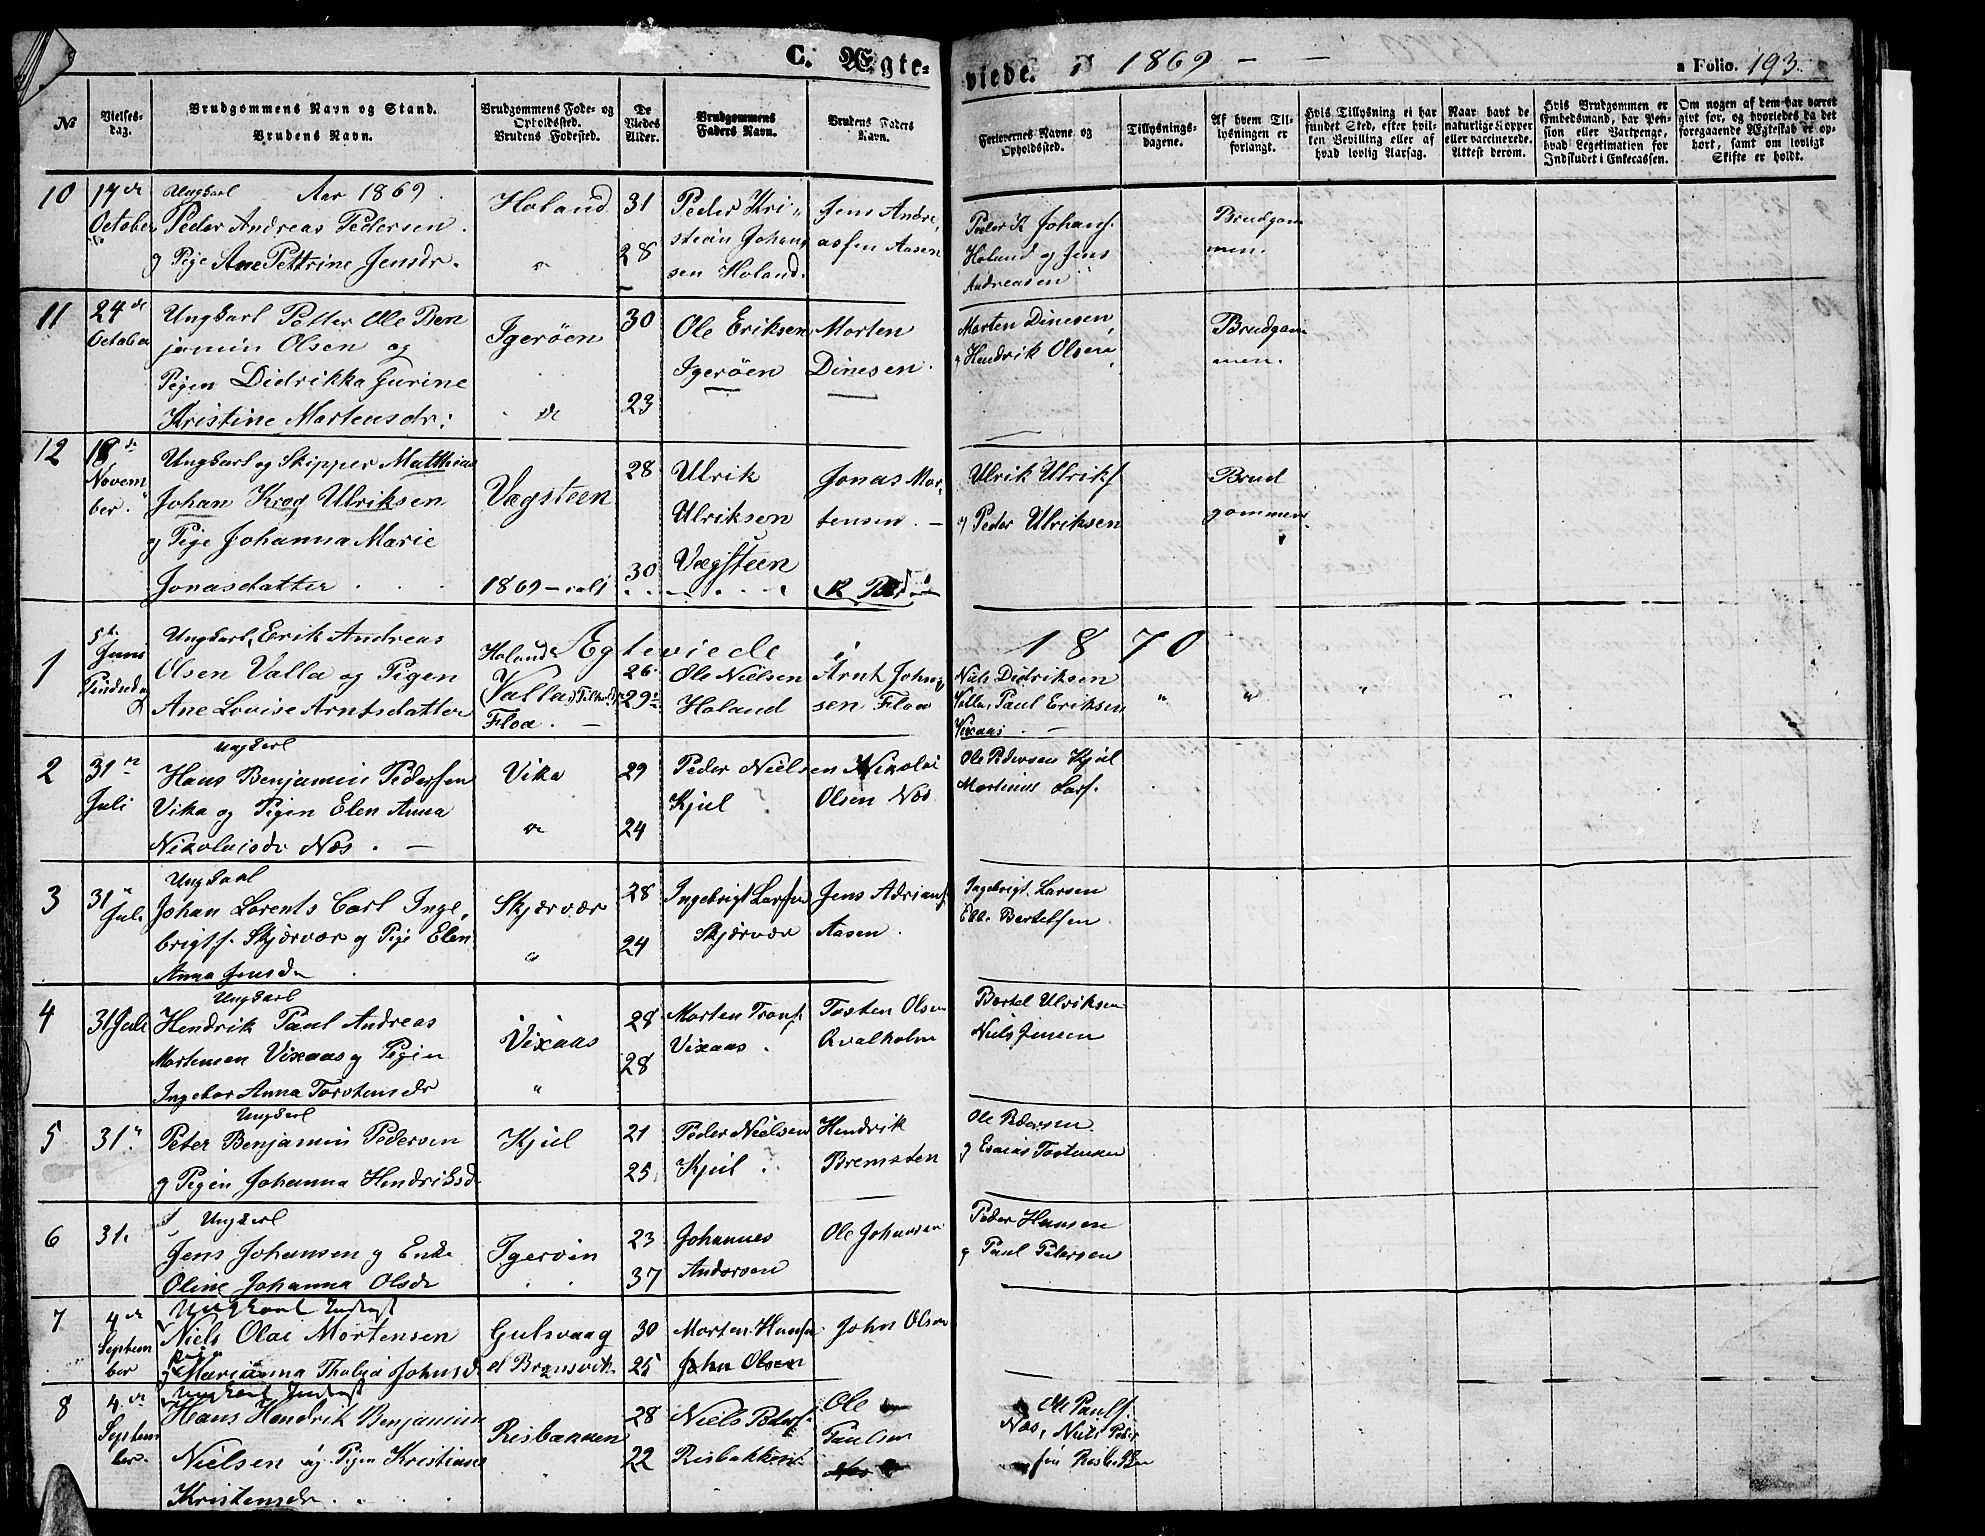 C. Ægte-
viede. i 1869 - -
a Folio. 193.
No
Vielses-
dag.
Brudgommens Navn og Stand.
Brudens Navn.
Brudgommens Føde- og
Opholdssted.
Brudens Fødested.
De
Viedes
Alder.
Brudgommens
Faders Navn.
Brudens Faders
Navn.
Forlovernes Navne og
Opholdssted.
Tillysnings-
dagene.
Af hvem Til-
lysningen er
forlangt.
Hvis Tillysning ei har
fundet Sted, efter hvil-
ken Bevilling eller af
hvad lovlig Aarsag.
Naar havt de
naturlige Kopper
eller vaccinerede.
Attest derom.
Hvis Brudgommen er
Embedsmand, har Pen-
sion eller Vartpenge,
hvad Legitimation for
Indskudet i Enkecassen.
Om nogen af dem har været
gift før, og hvorledes da det
foregaaende Ægteskab er op-
hørt, samt om lovligt
Skifte er holdt.
10
17de
October
Ungkarl Aar 1869
Peder Andreas Pedersen
og Pige Ane Pettrine Jensdr.
Holand
31
28
Peder Kri-
stian Johan
sen Holand.
Jens Andre
assen Aasen
Peder K Johans.
Holand og Jens
Andreasen
Brudgom
men.
11
24de
October
Ungkarl Petter Ole Ben
jamin Olsen og
Pigen Didrikka Gurine
Kristine Mortensdr.
Igerøen
do
30
23
Ole Eriksen
Igerøen
Morten
Dinesen.
Morten Dinesen
og Hendrik Olsen
Brudgom
men.
12
18de
Novem
ber.
Ungkarl og Skipper Matthias
Johan Krog Ulriksen
og Pige Johanna Marie
Jonasdatter
Vægsteen
1869
28
30
Ulrik
Ulriksen
Vægsteen
Jonas Mor-
tensen. -
Ulrik Ulriks
og Peder Ulriksen
Brud
gommen
Ægteviede i 1870
1
5te
Juni
Ungkarl, Erik Andreas
Olsen Valla og Pigen
Ane Lovise Arntsdatter
Holand
Valla
Floa. -
26
29
Ole Nielsen
Holand
Arnt Johan
sen Floa
Niels Didriksen
Valla, Paul Eriksen
Vixaas
" " " "
2
31te
Juli
Ungkarl
Hans Benjamin Pedersen
Vika og Pigen Elen Anna
Nikolaisdr Næs. -
Vika
do
29
24
Peder Nielsen
Kjul
Nikolai
Olsen Næs
Ole Pedersen Kjul
Martinus Lars.
3
31"
Juli
Ungkarl
Johan Lorents Carl Inge
brigts. Skjærvær og Pige Elen
Anna Jensdr
Skjærvær
"
28
24
Ingebrigt Larsen
Skjærvær
Jens Adrians.
Aasen.
Ingebrigt Larsen
Bertelsen
4
31 Juli
Ungkarl
Hendrik Paul Andreas
Mortensen Vixaas og Pigen
Ingebor Anna Torstensdr
Vixaas
"
28
28
Morten Trons.
Vixaas.
Tosten Olsen
Qvalholm
Bertel Ulriksen
Niels Jensen
5
31"
Ungkarl
Peter Benjamin Pedersen
og Pigen Johanna Hendriksd.
Kjul
21
25
Peder Nielsen
Kjul.
Hendrik
Bremsten
Ole Pedersen.
og Esaias Tostensen
6
31.
Ungkarl
Jens Johansen og Enke
Oline Johanna Olsdr
Igerøen
23
37
Johannes
Andersen
Ole Johansen
Peder Hansen
og Paul Petersen
7
4de
Septem
ber
Ungkarl Inderst
Niels Olai Mortensen
Pige
og Marianna Thalia Johnsd.
Gulsvaag
et Brænsvik
30
25
Morten Hansen
John Olsen
John Olsen
8
4de
Septem
ber.
Ungkarl Inderst
Hans Hendrik Benjamin
Nielsen og Pigen Kristiane
Kristensdr.
Risbakken
28
22
Niels Peders.
Risbakken
Ole
Paulsen
Ole Pauls.
Næs, Niels Peder
sen Risbakken